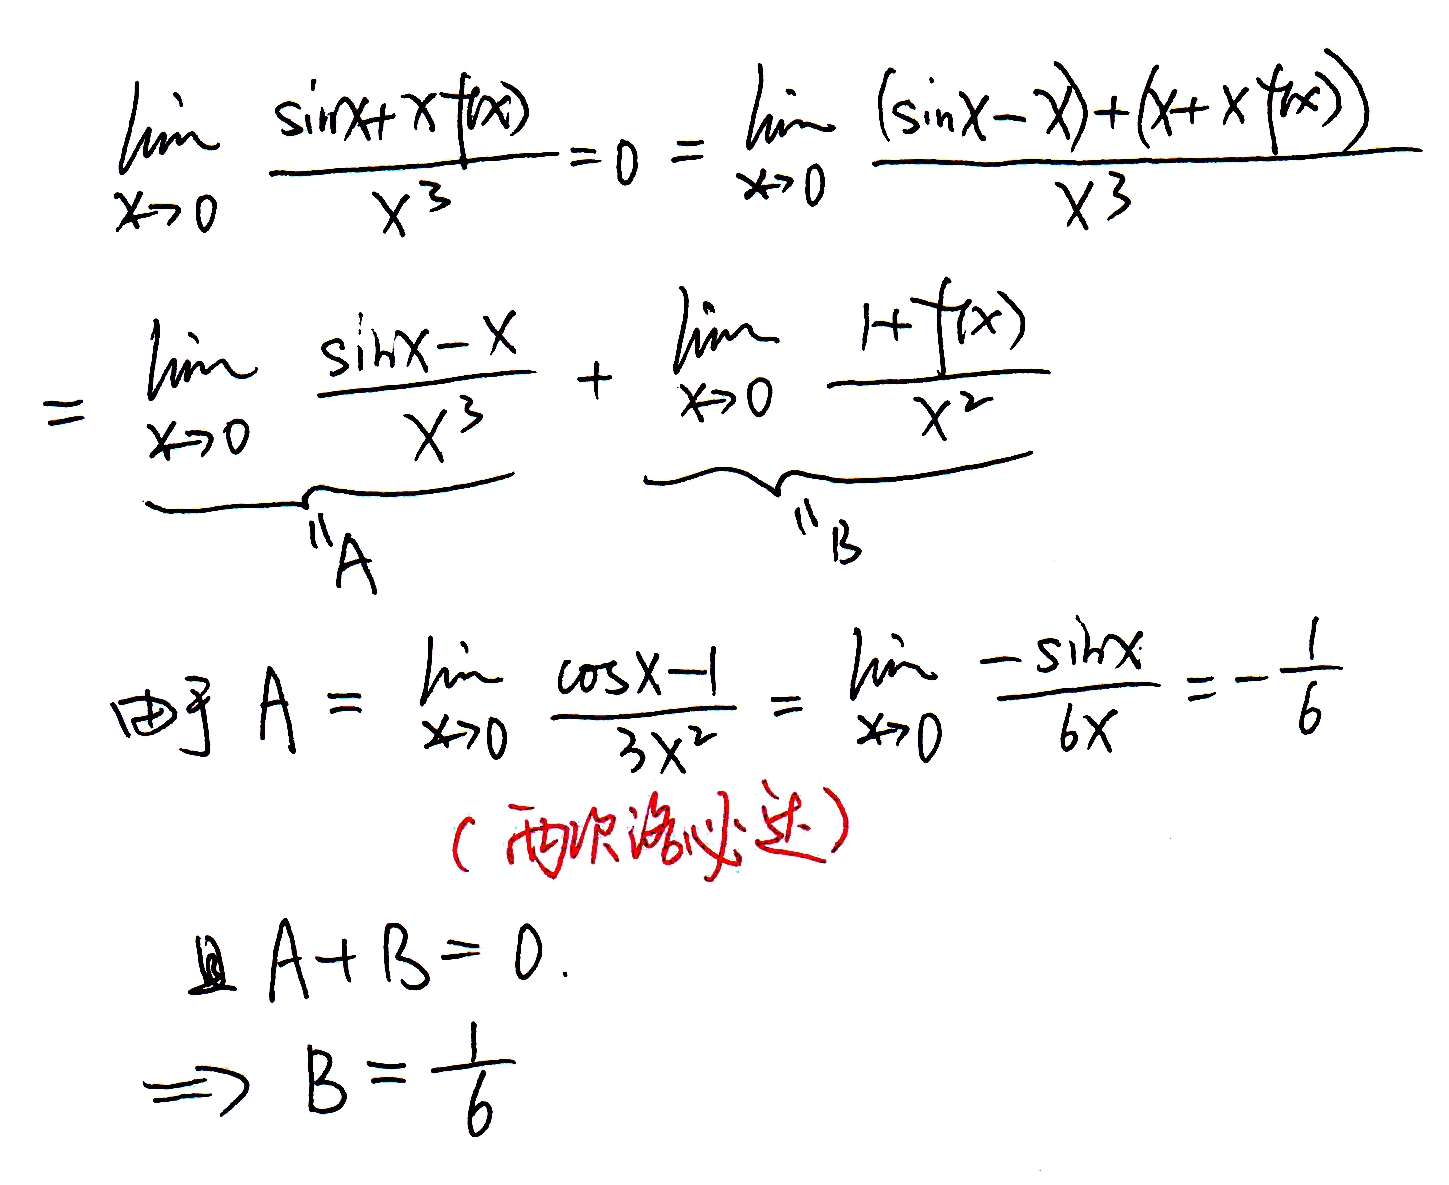 lim x→0 (sinx + x f(x)) / x³ = 0 = lim x→0 ((sinx − x) + (x + x f(x))) / x³
= lim x→0 (sinx − x) / x³ + lim x→0 (1 + f(x)) / x²
" A " B
由于 A = lim x→0 (cosx − 1) / 3x² = lim x→0 (−sinx) / 6x = −1/6
(两次洛必达)
且 A + B = 0.
⇒ B = 1/6